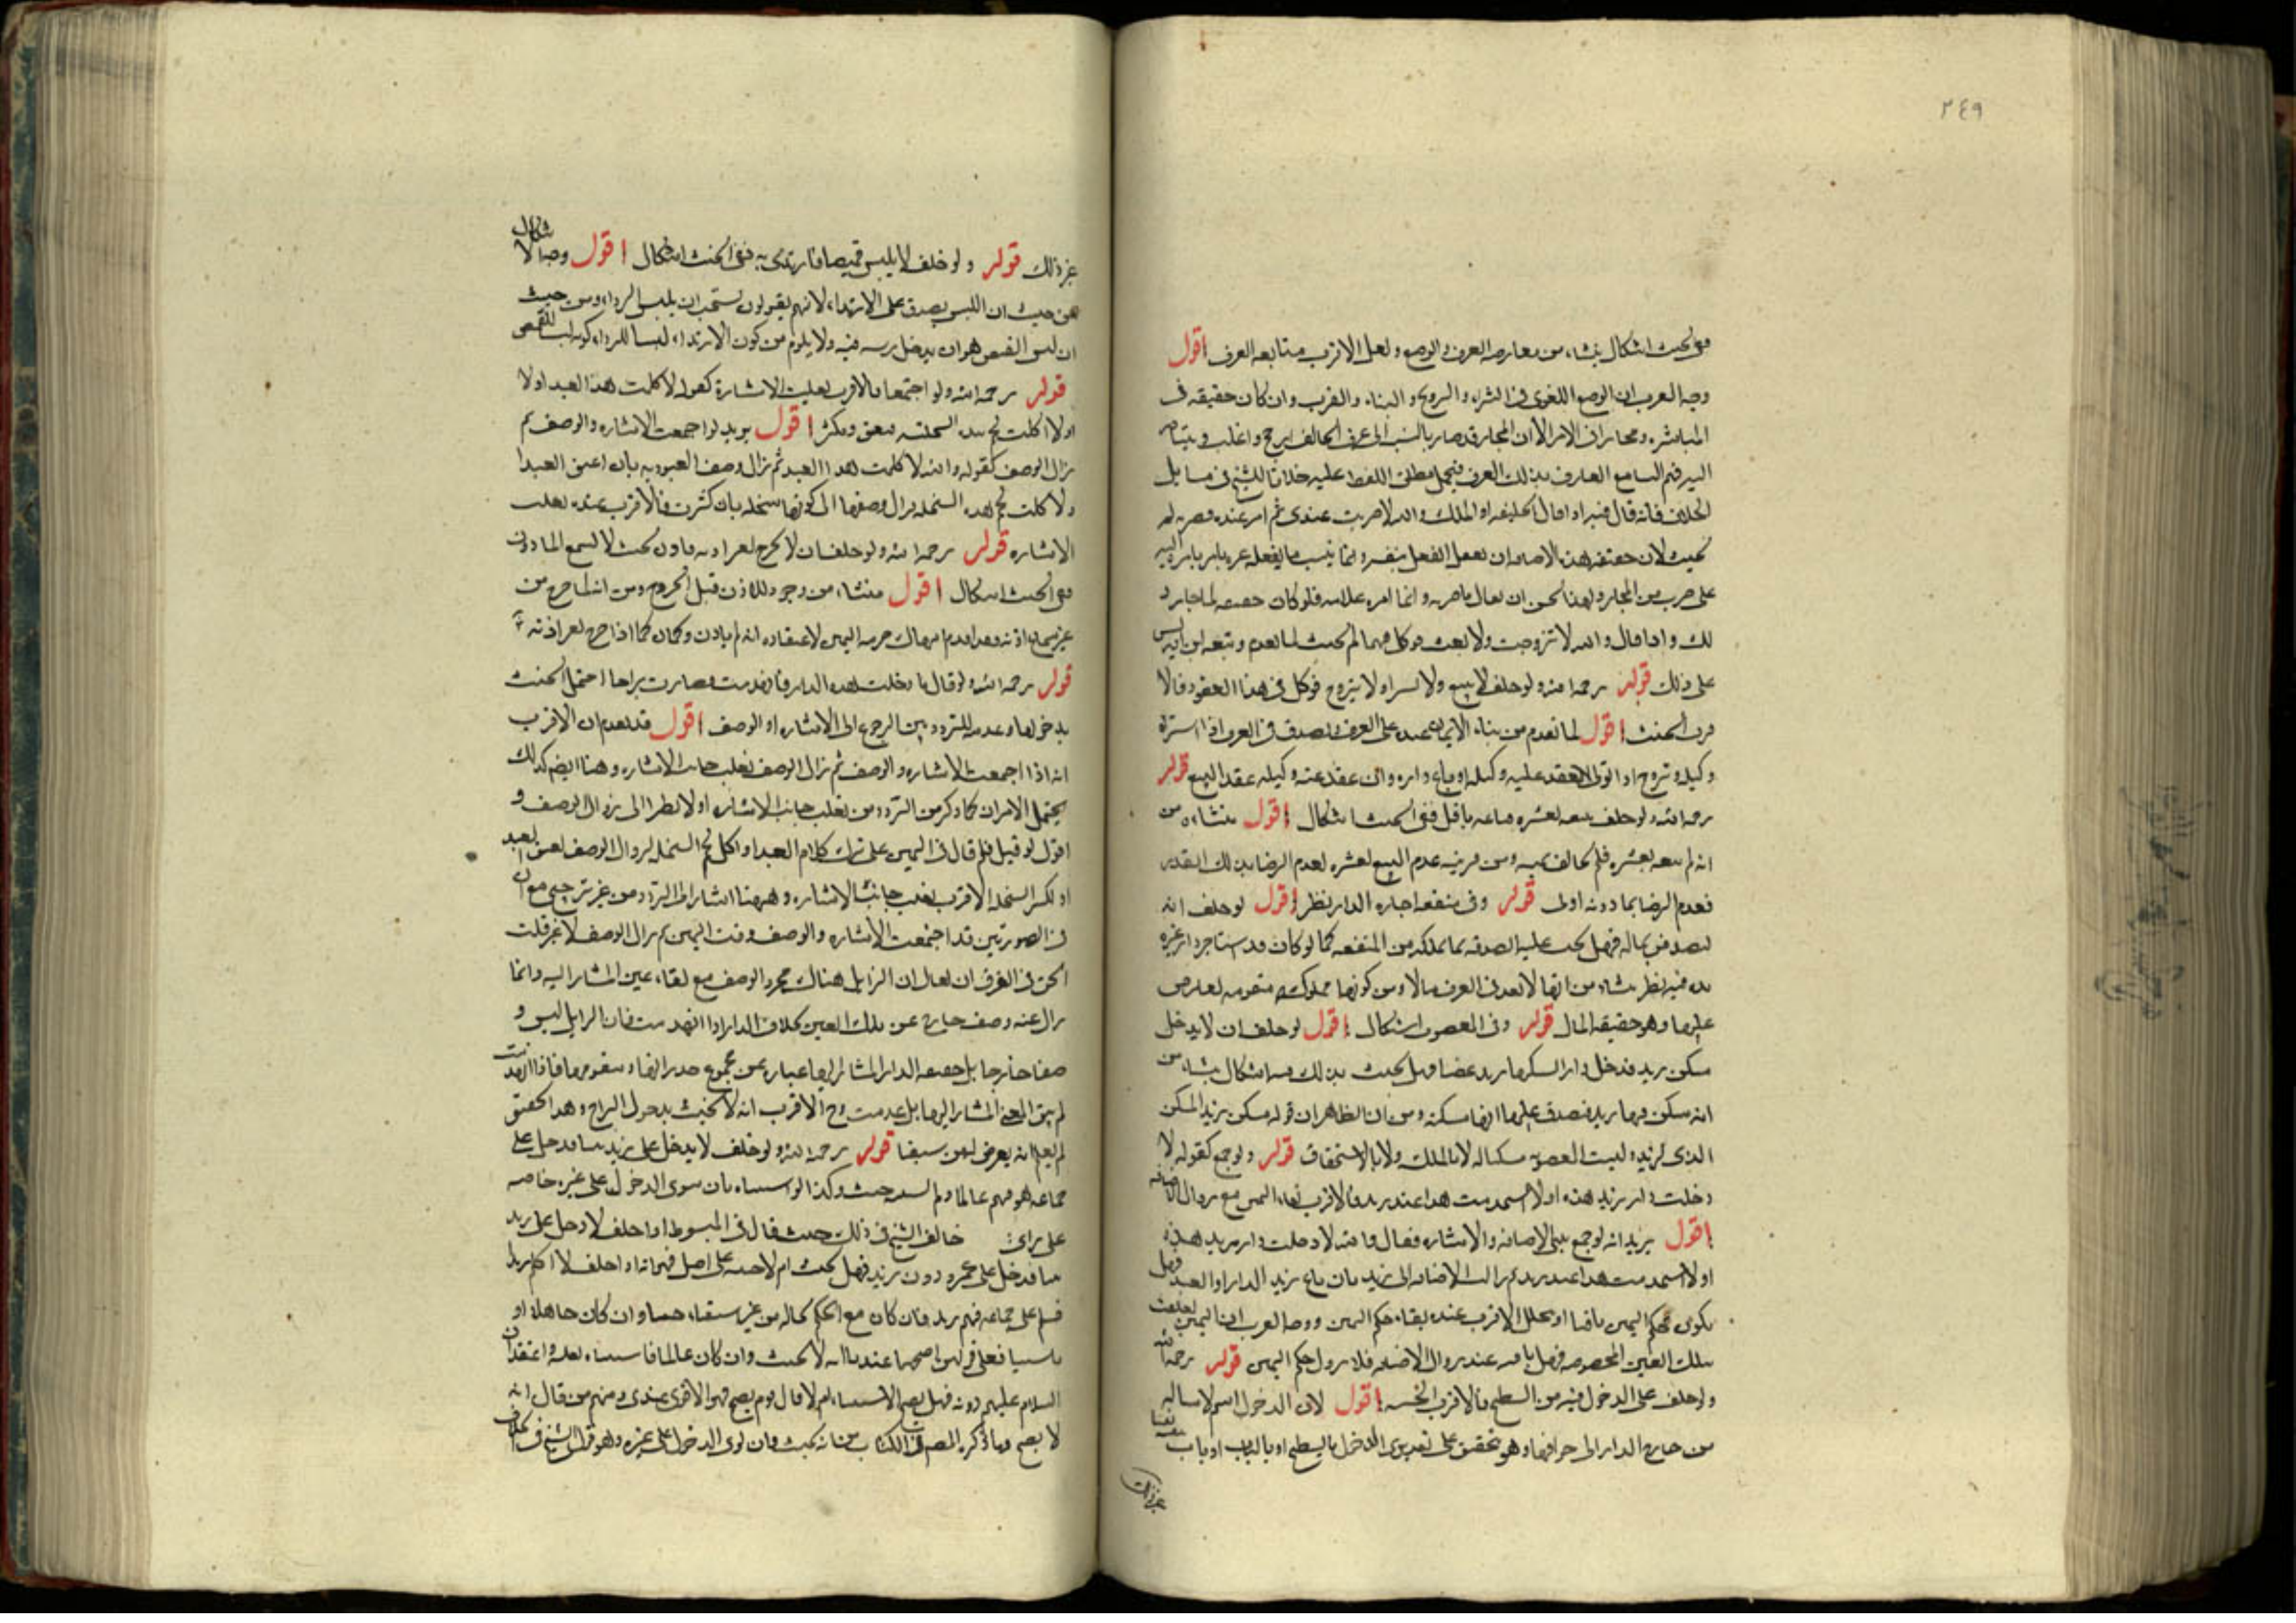 ٢٤٩
ففي الحنث اشكال ينشاء من معارضه العرف والوضع ولعل الاقرب متابعه العرف اقول
وجه القرب ان الوضع اللغوى فى الشراء والتزويج والبناء والضرب وان كان حقيقه فى
المباشره ومجاز فى الامر الا ان المجاز قد صار بالنسبه الى عرف الحالف ارجح واغلب ويتبادر
اليه فهم السامع العارف بذلك العرف فيحمل مطلق اللفظ عليه خلافا للشيخ فى مسايل
الخلاف فانه قال فيه اذا قال الخليفه او الملك والله لاضربت عبدى ثم امر عبده فضربه لم
يحنث لان حقيقه هذه الاضافه ان يفعل الفعل بنفسه وانما ينسب ما يفعله غيره بامره اليه
على ضرب من المجاز ولهذا يحسن ان يقال ما ضربه وانما امر غلامه فلو كان حقيقه لما جاز ذ
لك واذا قال والله لا تزوجت ولا بعت فوكل فيهما لم يحنث لما تقدم وتبعه ابن ادريس
على ذلك قوله رحمه الله ولو حلف لا يبيع ولا يشترى او لا يتزوج فوكل فى هذا العقود فالا
قرب الحنث اقول لما تقدم من بناء الايمان عنده على العرف ويصدق فى العرف اذا اشترا له
وكيله وتزوج اذا تولى العقد عليه وكيله او باع داره وان عقد عنه وكيله عقد البيع قوله
رحمه الله ولو حلف بيعه بعشره فباعه باقل ففى الحنث اشكال اقول ينشاء من
انه لم يبعه بعشره فلم يخالف يمينه ومن قرينه عدم البيع بعشره لعدم الرضا بذلك القدر
فعدم الرضا بما دونه اولى قوله وفى منفعه اجاره الدار نظر اقول لو حلف انه
ليتصدقن بماله فهل يجب عليه الصدقه بما يملكه من المنفعه كما لو كان قد استاجر دار غيره
مده فيه نظر ينشاء من انها لا تعد فى العرف مالا ومن كونها مملوكه متقومه يعاوض
عليها وهو حقيقه المال قوله وفى المغصوب اشكال اقول لو حلف ان لا يدخل
مسكن زيد فدخل دارا يسكنها زيد غصبا فهل يحنث بذلك فيه اشكال ينشاء من
انه سكن فيها زيد فيصدق عليها انها مسكنه ومن ان الظاهر ان قوله مسكن زيد المسكن
الذى لزيد وليست المغصوب مسكنا له لا بالملك ولا بالاستحقاق قوله ولو جمع كقوله لا
دخلت دار زيد هذه او لا استخدمت هذا عبد زيد فالاقرب بقاء اليمين مع زوال الاضافه
اقول يريد انه لو جمع بين الاضافه والاشاره فقال والله لا دخلت دار زيد هذه
او لا استخدمت هذا عبد زيد ثم زالت الاضافه الى زيد بان باع زيد الدار او العبد فهل
يكون حكم اليمين باقيا او ينحل الاقرب عنده بقاء حكم اليمين ووجه القرب ان اليمين تعلقت
بتلك العين المخصوصه فهى باقيه عند زوال الاضافه فلا يزول حكم اليمين قوله رحمه الله
ولو حلف على الدخول فنزل من السطح فالاقرب الحنث اقول لان الدخول اسم لانتقاله
من خارج الدار الى جوفها وهو يتحقق على تقديرى الدخول بالسطح او بالباب او باب
غير ذلك
غير ذلك قوله ولو حلف لا يلبس قميصا فارتدى به ففى الحنث اشكال اقول وجه الاشكال
من حيث ان اللبس يصدق على الارتداء لانهم يقولون يستحب ان يلبس الرداء ومن حيث
ان لبس القميص هو ان يدخل براسه فيه ولا يلزم من كون الارتداء لبسا للرداء كونه لبسا للقميص
قوله رحمه الله ولو اجتمعا فالاقرب تغليب الاشارة كقوله لا كلمت هذا العبد او لا
او لا اكلت لحم هذه السخله فيعتق وتكبر اقول يريد لو اجتمعت الاشاره والوصف ثم
زال الوصف كقوله والله لا كلمت هذا العبد ثم زال وصف العبوديه بان اعتق العبد ا
ولا اكلت لحم هذه السخله فزال وصفها الى كونها سخله بان كبرت فالاقرب عنده تغليب
الاشاره قوله رحمه الله ولو حلف ان لا يخرج بغير اذنه فاذن بحيث لا يسمع الماذون
ففى الحنث اشكال اقول منشاء من وجود الاذن قبل الخروج ومن انها خرج من
غير سماع اذنه فقد اقدم على هتك حرمه اليمين لاعتقاده انه لم ياذن وكان كما اذا خرج بغير اذنه
قوله رحمه الله ولو قال لا دخلت هذه الدار فانهدمت وصارت براحا احتمل الحنث
بدخولها وعدمه للتردد بين الرجوع الى الاشاره او الوصف اقول قد تقدم ان الاقرب
انه اذا اجتمعت الاشاره والوصف ثم زال الوصف تغليب جانب الاشاره وهنا ايضا كذلك
يحتمل الامران كما ذكر من التردد من تغليب جانب الاشاره اولا نظرا الى زوال الوصف و
اقول لو قيل فلم قال فى اليمين على ترك كلام العبد او اكل لحم السخله لزوال الوصف بعتق العبد
او لكبر السخله الاقرب تغليب جانب الاشاره وههنا اشار الى التردد من غير ترجيح مع ان
فى الصورتين قد اجتمعت الاشاره والوصف وقت اليمين ثم زال الوصف لا غير قلت
الحق فى الفرق ان يقال ان الزايل هناك مجرد الوصف مع بقاء عين المشار اليه وانما
زال عنه وصف خارج عن تلك العين بخلاف الدار اذا انهدمت فان الزايل ليس و
صفا خارجا بل حقيقه الدار المشار اليها عباره عن مجموع جدرانها وسقوفها فاذا انهدمت
لم يبق العين المشار اليها بل عدمت وح الاقرب انه لا يحنث بدخول البراح وهذا التحقيق
لم يعلم انه يعرض لمن سبقنا قوله رحمه الله ولو حلف لا يدخل على زيد بيتا فدخل على
جماعه هو فيهم عالما ولم يستثنه حنث وكذا لو استثناه بان نوى الدخول على غيره خاصه
على راى خالف الشيخ فى ذلك حيث قال فى المبسوط اذا حلف لا دخل على زيد
بيتا فدخل على عمرو دون زيد فهل يحنث ام لا مبنيه على اصل فهو انه اذا حلف لا اكلم زيدا
فسلم على جماعه فيهم زيد فان كان مع العلم بحاله من غير استثناء حنث وان كان جاهلا او
ناسيا فعلى قولين اصحهما عندنا انه لا يحنث وان كان عالما فاستثناه بقلبه واعتقد ان
السلام عليهم دونه فهل يصح الاستثناء ام لا قال قوم يصح وهو الاقوى عندى ومنهم من قال انه
لا يصح وما ذكره المصنف فى الكتاب من انه يحنث وان نوى الدخول على غيره وهو قول الشيخ فى الخلاف